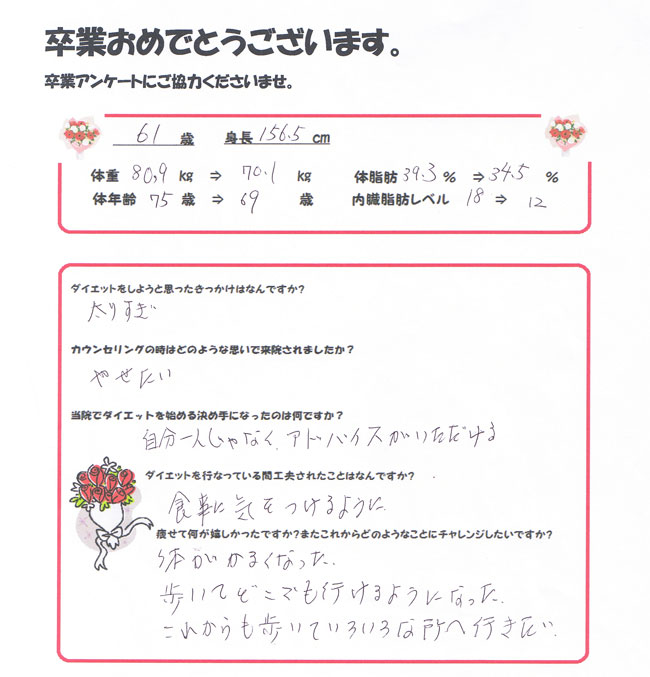 卒業おめでとうございます。
卒業アンケートにご協力くださいませ。
61 歳 身長 156.5 cm
体重 80.9 kg ⇒ 70.1 kg 体脂肪 39.3 % ⇒ 34.5 %
体年齢 75 歳 ⇒ 69 歳 内臓脂肪レベル 18 ⇒ 12
ダイエットをしようと思ったきっかけはなんですか?
太りすぎ
カウンセリングの時はどのような思いで来院されましたか?
やせたい
当院でダイエットを始める決め手になったのは何ですか?
自分一人じゃなく、アドバイスがいただける
ダイエットを行なっている間工夫されたことはなんですか?
食事に気をつけるように
痩せて何が嬉しかったですか?またこれからどのようなことにチャレンジしたいですか?
体がかるくなった.
歩いてどこでも行けるようになった.
これからも歩いていろいろな所へ行きたい.